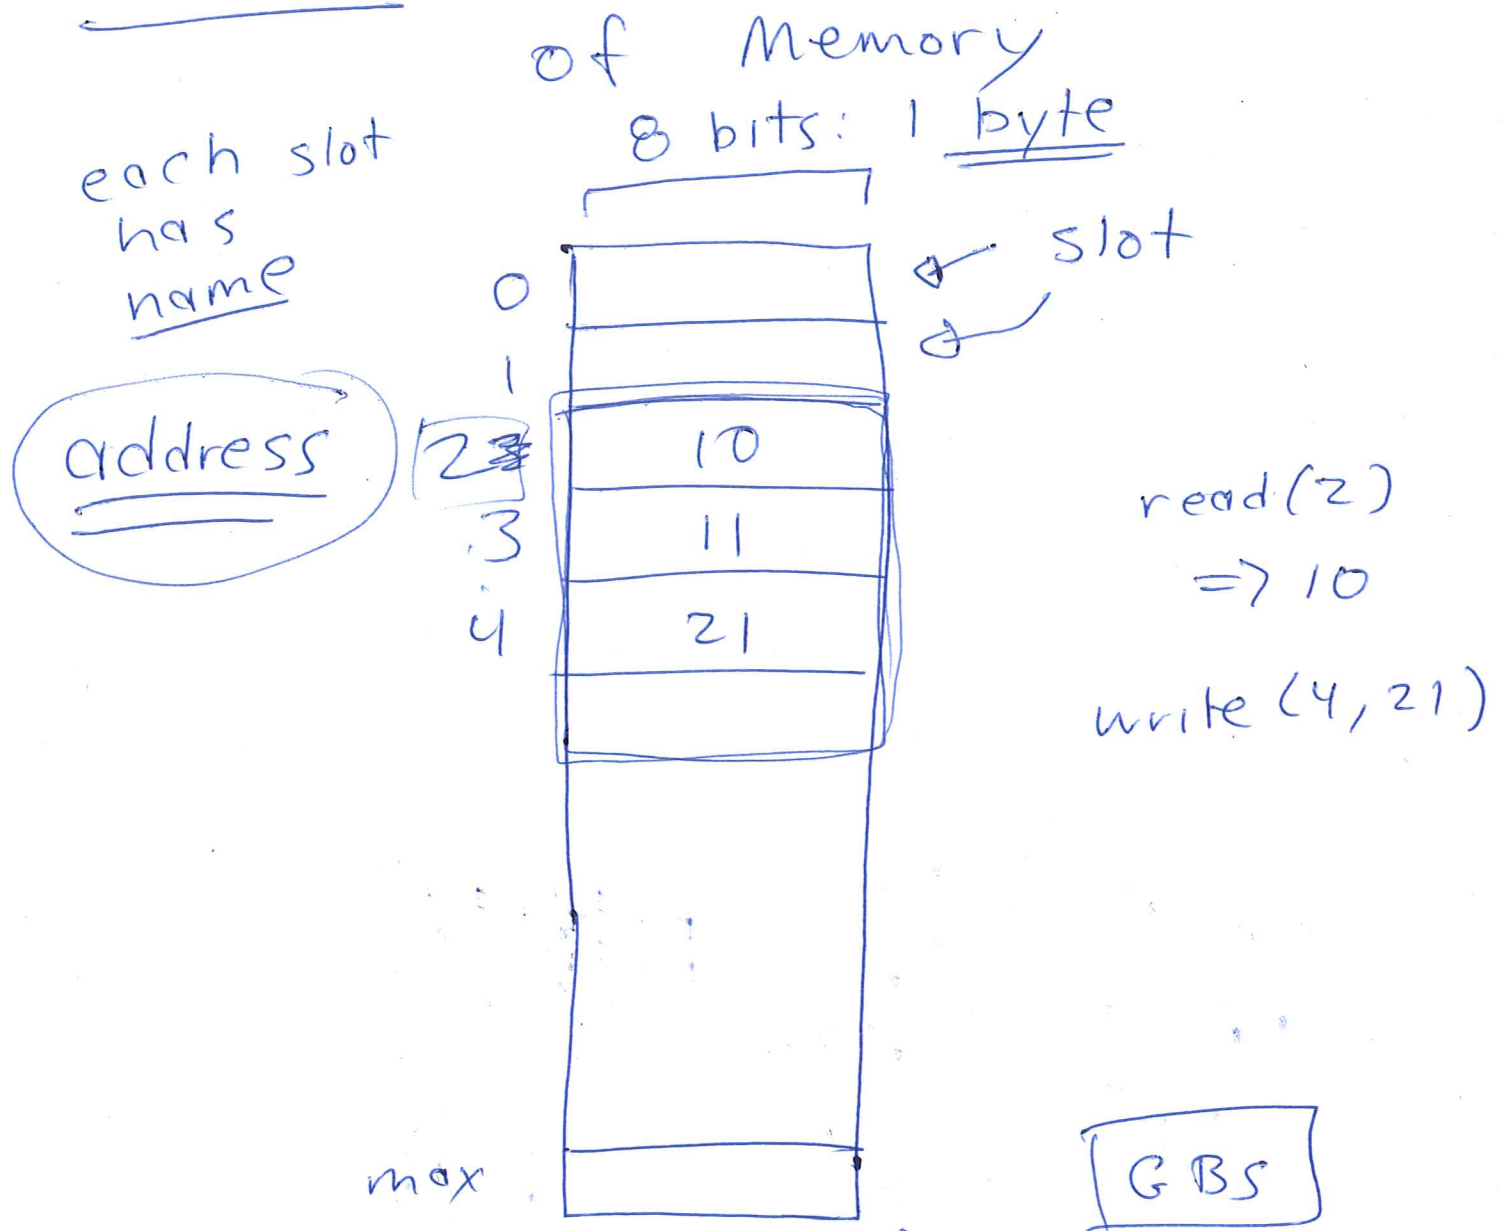 of Memory
8 bits: 1 byte
each slot
has
name
slot
0
1
address
2
10
3
11
4
21
read(2)
=> 10
write (4,21)
max
GBS